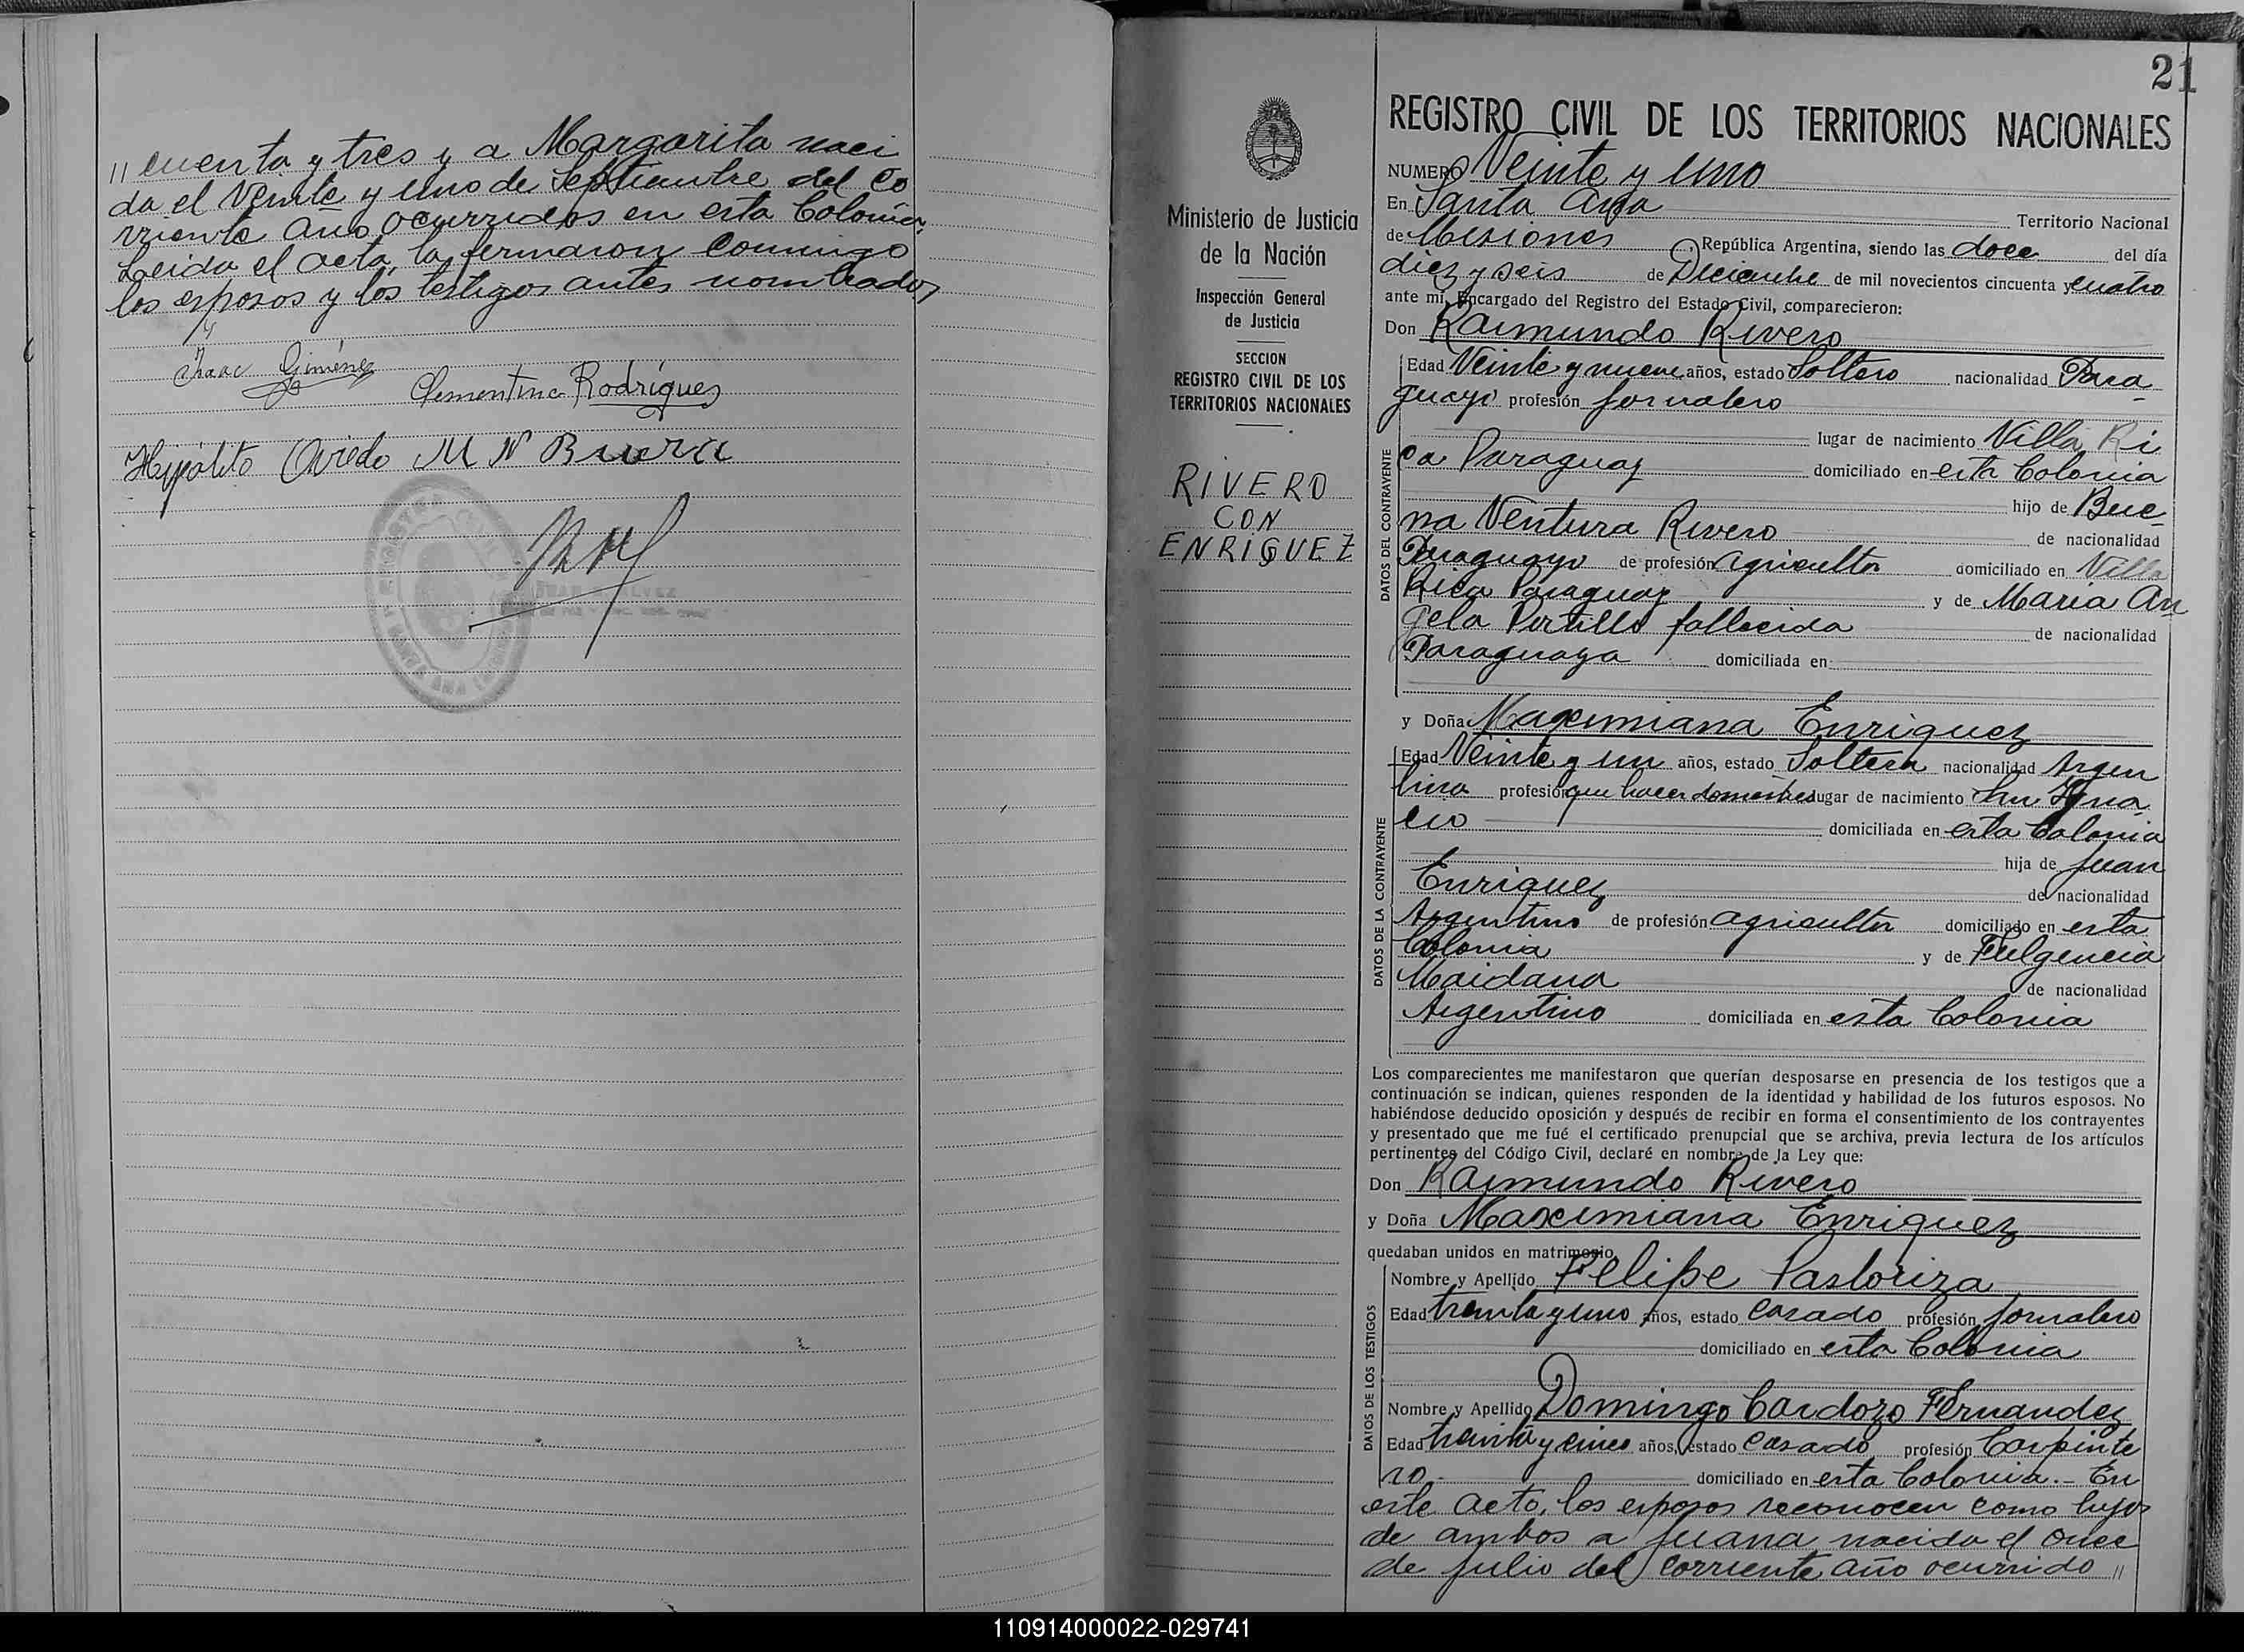 // cuenta y tres y a Margarita naci
da el Veinte y uno de Septiembre del co
rriente año ocurridos en esta Colonia.
Leida el acta, la firmaron conmigo
los esposos y los testigos antes nombrados
Isaac Giménez
Clementina Rodrígues
Hipólito Oviedo
21
REGISTRO CIVIL DE LOS TERRITORIOS NACIONALES
Ministerio de Justicia
de la Nación
Inspección General
de Justicia
SECCION
REGISTRO CIVIL DE LOS
TERRITORIOS NACIONALES
RIVERO
CON
ENRIQUEZ
NUMERO Veinte y uno
En Santa Ana Territorio Nacional
de Misiones, República Argentina, siendo las doce del día
diez y seis de Diciembre de mil novecientos cincuenta y cuatro
ante mí, Encargado del Registro del Estado Civil, comparecieron:
Don Raimundo Rivero
DATOS DEL CONTRAYENTE
Edad Veinte y nueve años, estado Soltero nacionalidad Para
guayo profesión jornalero
lugar de nacimiento Villa Ri
ca Paraguay domiciliado en esta Colonia
hijo de Bue
na Ventura Rivero de nacionalidad
Paraguayo de profesión agricultor domiciliado en Villa
Rica Paraguay y de Maria An
gela Portillo fallecida de nacionalidad
Paraguaya domiciliada en
y Doña Maximiana Enriquez
DATOS DE LA CONTRAYENTE
Edad Veinte y un años, estado Soltera nacionalidad Argen
tina profesión que hacer domestico lugar de nacimiento San Igna
cio domiciliada en esta Colonia
hija de Juan
Enriquez de nacionalidad
Argentino de profesión agricultor domiciliado en esta
Colonia y de Fulgencia
Maidana de nacionalidad
Argentino domiciliada en esta Colonia
Los comparecientes me manifestaron que querían desposarse en presencia de los testigos que a
continuación se indican, quienes responden de la identidad y habilidad de los futuros esposos. No
habiéndose deducido oposición y después de recibir en forma el consentimiento de los contrayentes
y presentado que me fué el certificado prenupcial que se archiva, previa lectura de los artículos
pertinentes del Código Civil, declaré en nombre de la Ley que:
Don Raimundo Rivero
y Doña Maximiana Enriquez
quedaban unidos en matrimonio
DATOS DE LOS TESTIGOS
Nombre y Apellido Felipe Pastoriza
Edad treinta y uno años, estado casado profesión jornalero
domiciliado en esta Colonia
Nombre y Apellido Domingo Cardozo Fernandez
Edad treinta y cinco años, estado casado profesión Carpinte
ro domiciliado en esta Colonia.- En
este acto, los esposos reconocen como hijos
de ambos a Juana nacida el once
de julio del corriente año ocurrido //
110914000022-029741